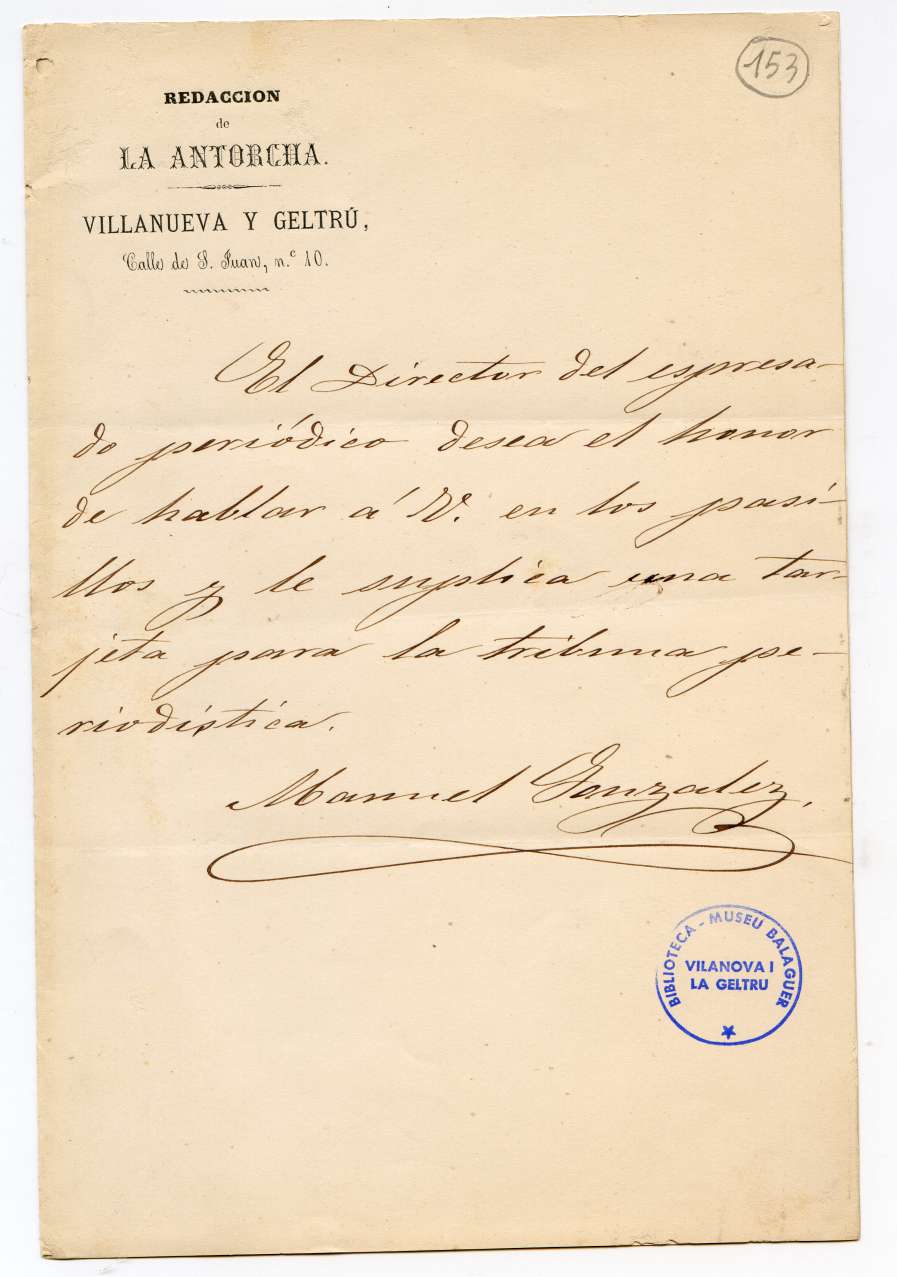 153
REDACCION
de
LA ANTORCHA.
VILLANUEVA Y GELTRÚ,
Calle de S. Juan, n.º 10.
El Director del espresa-
do periódico desea el honor
de hablar á V. en los pasi-
llos y le suplica una tar-
jeta para la tribuna pe-
riodística.
Manuel Gonzalez.
BIBLIOTECA - MUSEU BALAGUER
VILANOVA I
LA GELTRU